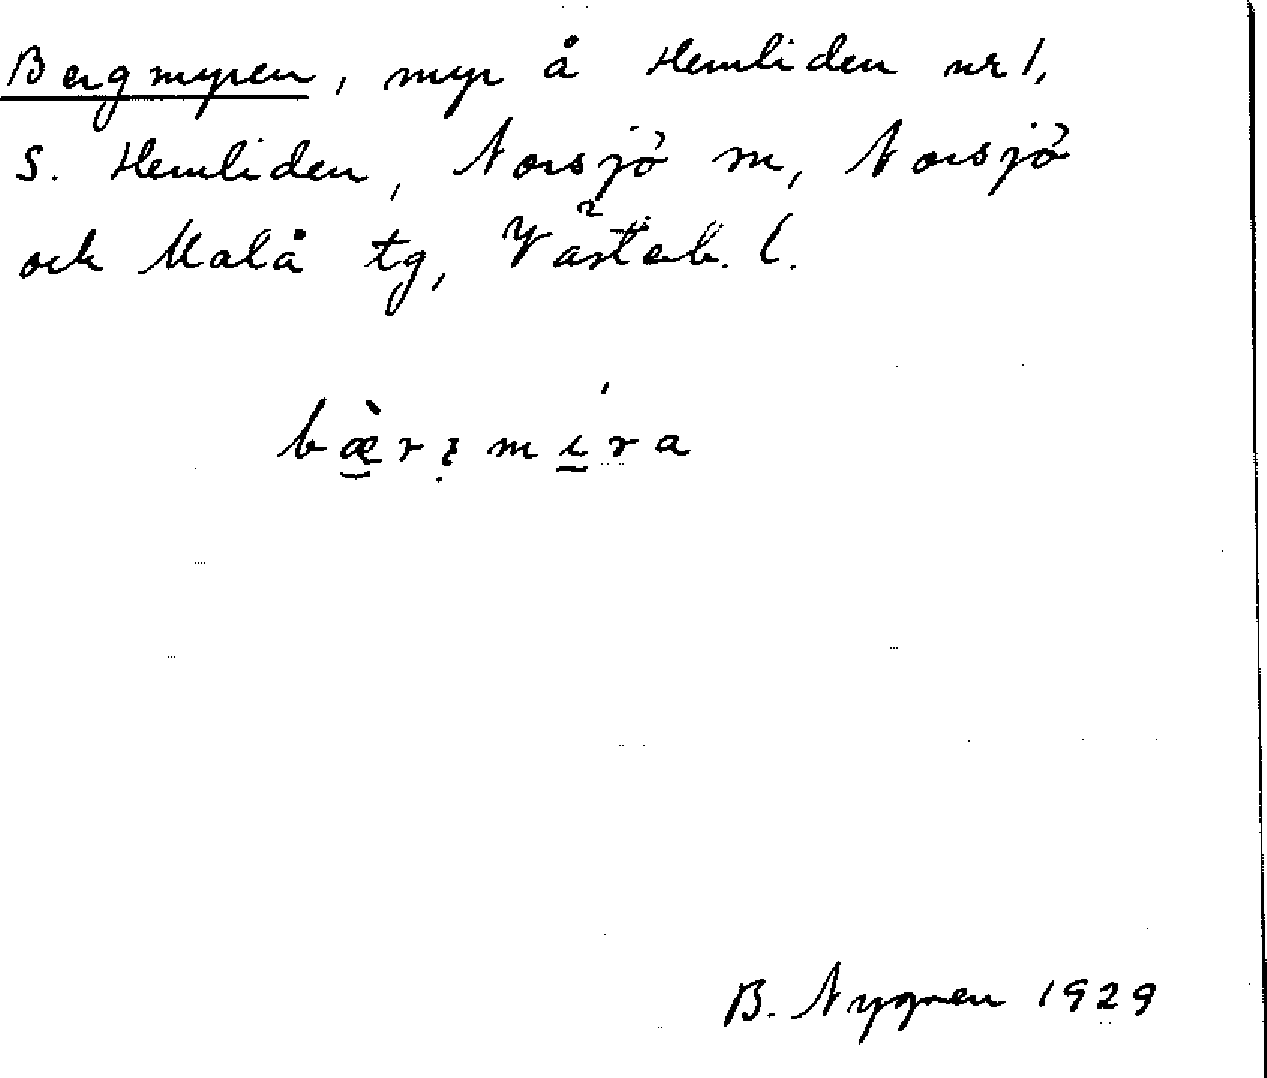 Bergmyren, myr å Hemliden nr 1,
S. Hemliden, Norsjö sn, Norsjö
och Malå tg, Västerb. l.
bæ̀rɪ̣mɩ́ra
B. Nygren 1929